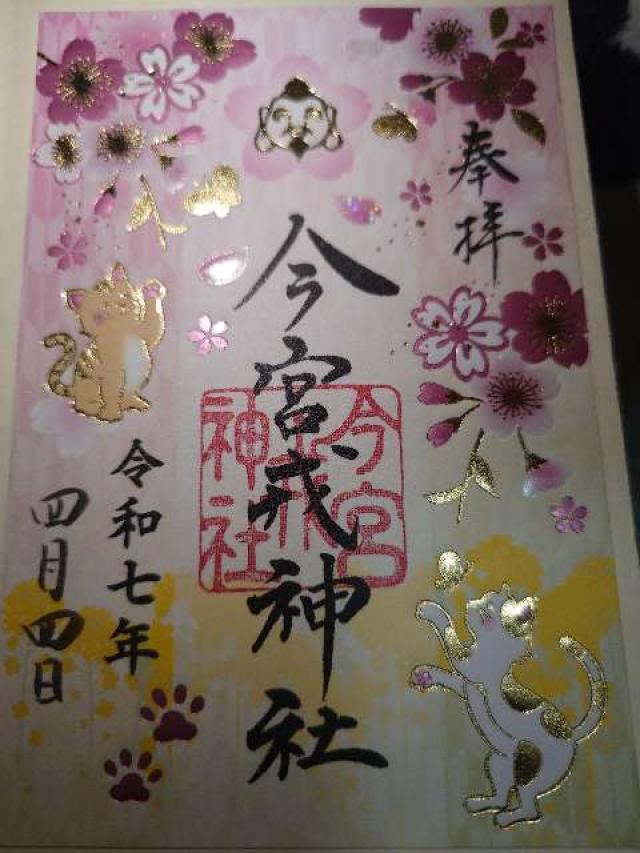 奉拝
今宮戎神社
今宮戎神社
令和七年
四月四日